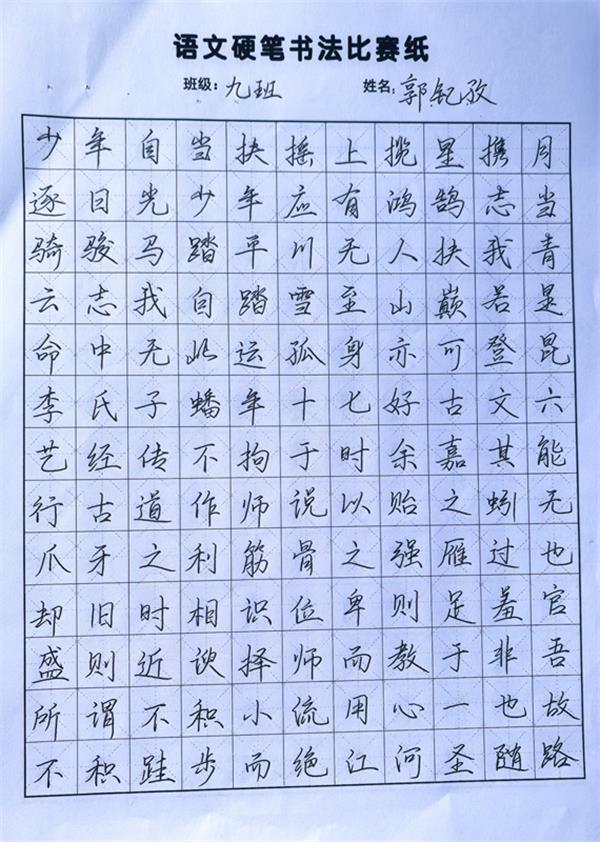 语文硬笔书法比赛纸
班级：九班 姓名：郭钇孜
少年自当扶摇上揽星携月
逐日光少年应有鸿鹄志当
骑骏马踏平川无人扶我青
云志我自踏雪至山巅若是
命中无此运孤身亦可登昆
李氏子蟠年十七好古文六
艺经传不拘于时余嘉其能
行古道作师说以贻之蚓无
爪牙之利筋骨之强雁过也
却旧时相识位卑则足羞官
盛则近谀择师而教于非吾
所谓不积小流用心一也故
不积跬步而绝江河圣随路